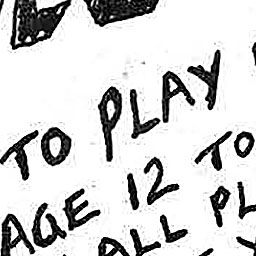 TO PLAY
AGE 12 TO
ALL PL